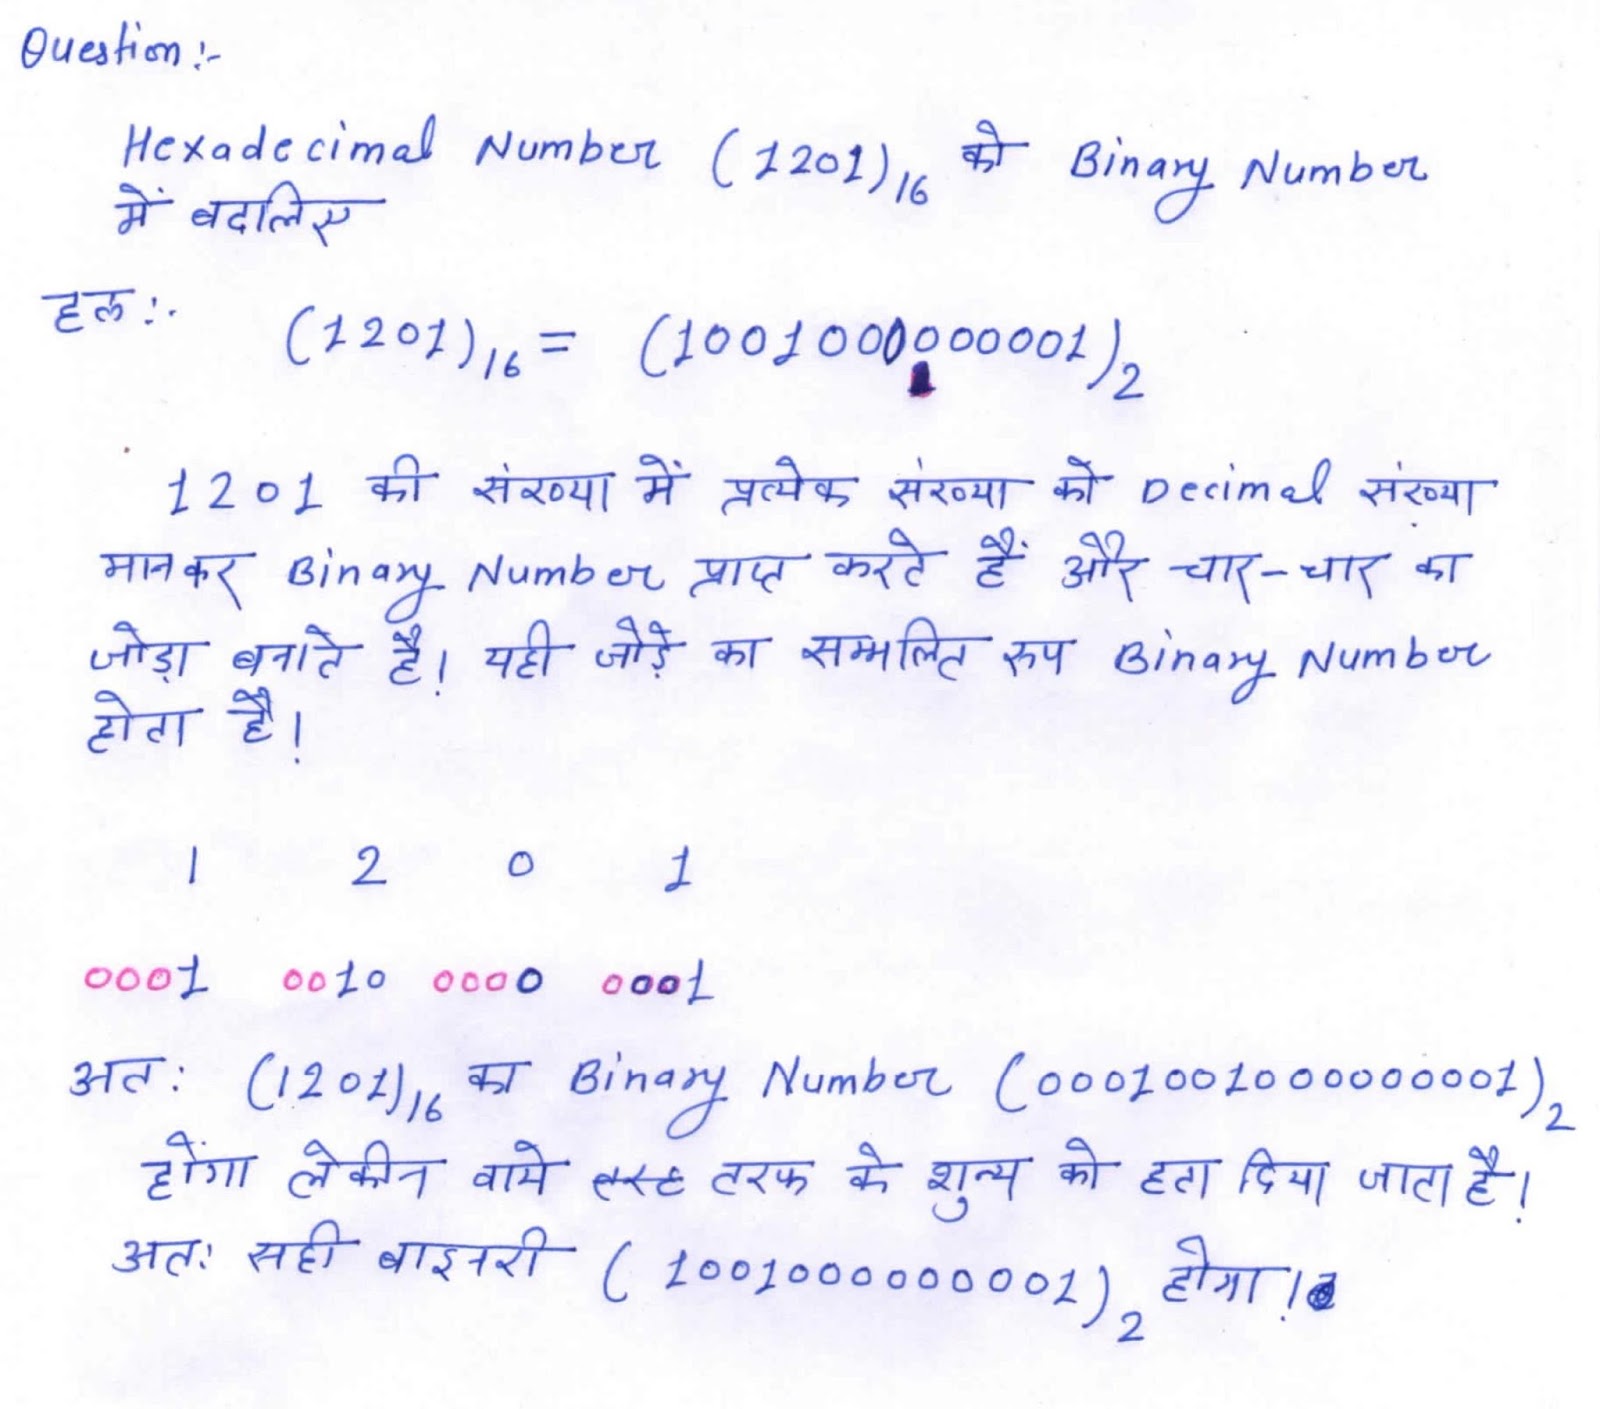 Question:-
Hexadecimal Number (1201)16 को Binary Number
में बदलिए
हल:-
(1201)16 = (1001000000001)2
1201 की संख्या में प्रत्येक संख्या को Decimal संख्या
मानकर Binary Number प्राप्त करते हैं और चार-चार का
जोड़ा बनाते है। यही जोड़े का सम्मलित रुप Binary Number
होता है।
1 2 0 1
0001 0010 0000 0001
अत: (1201)16 का Binary Number (0001001000000001)2
होंगा लेकीन बाये तरफ के शुन्य को हटा दिया जाता है।
अत: सही बाइनरी (1001000000001)2 होगा।